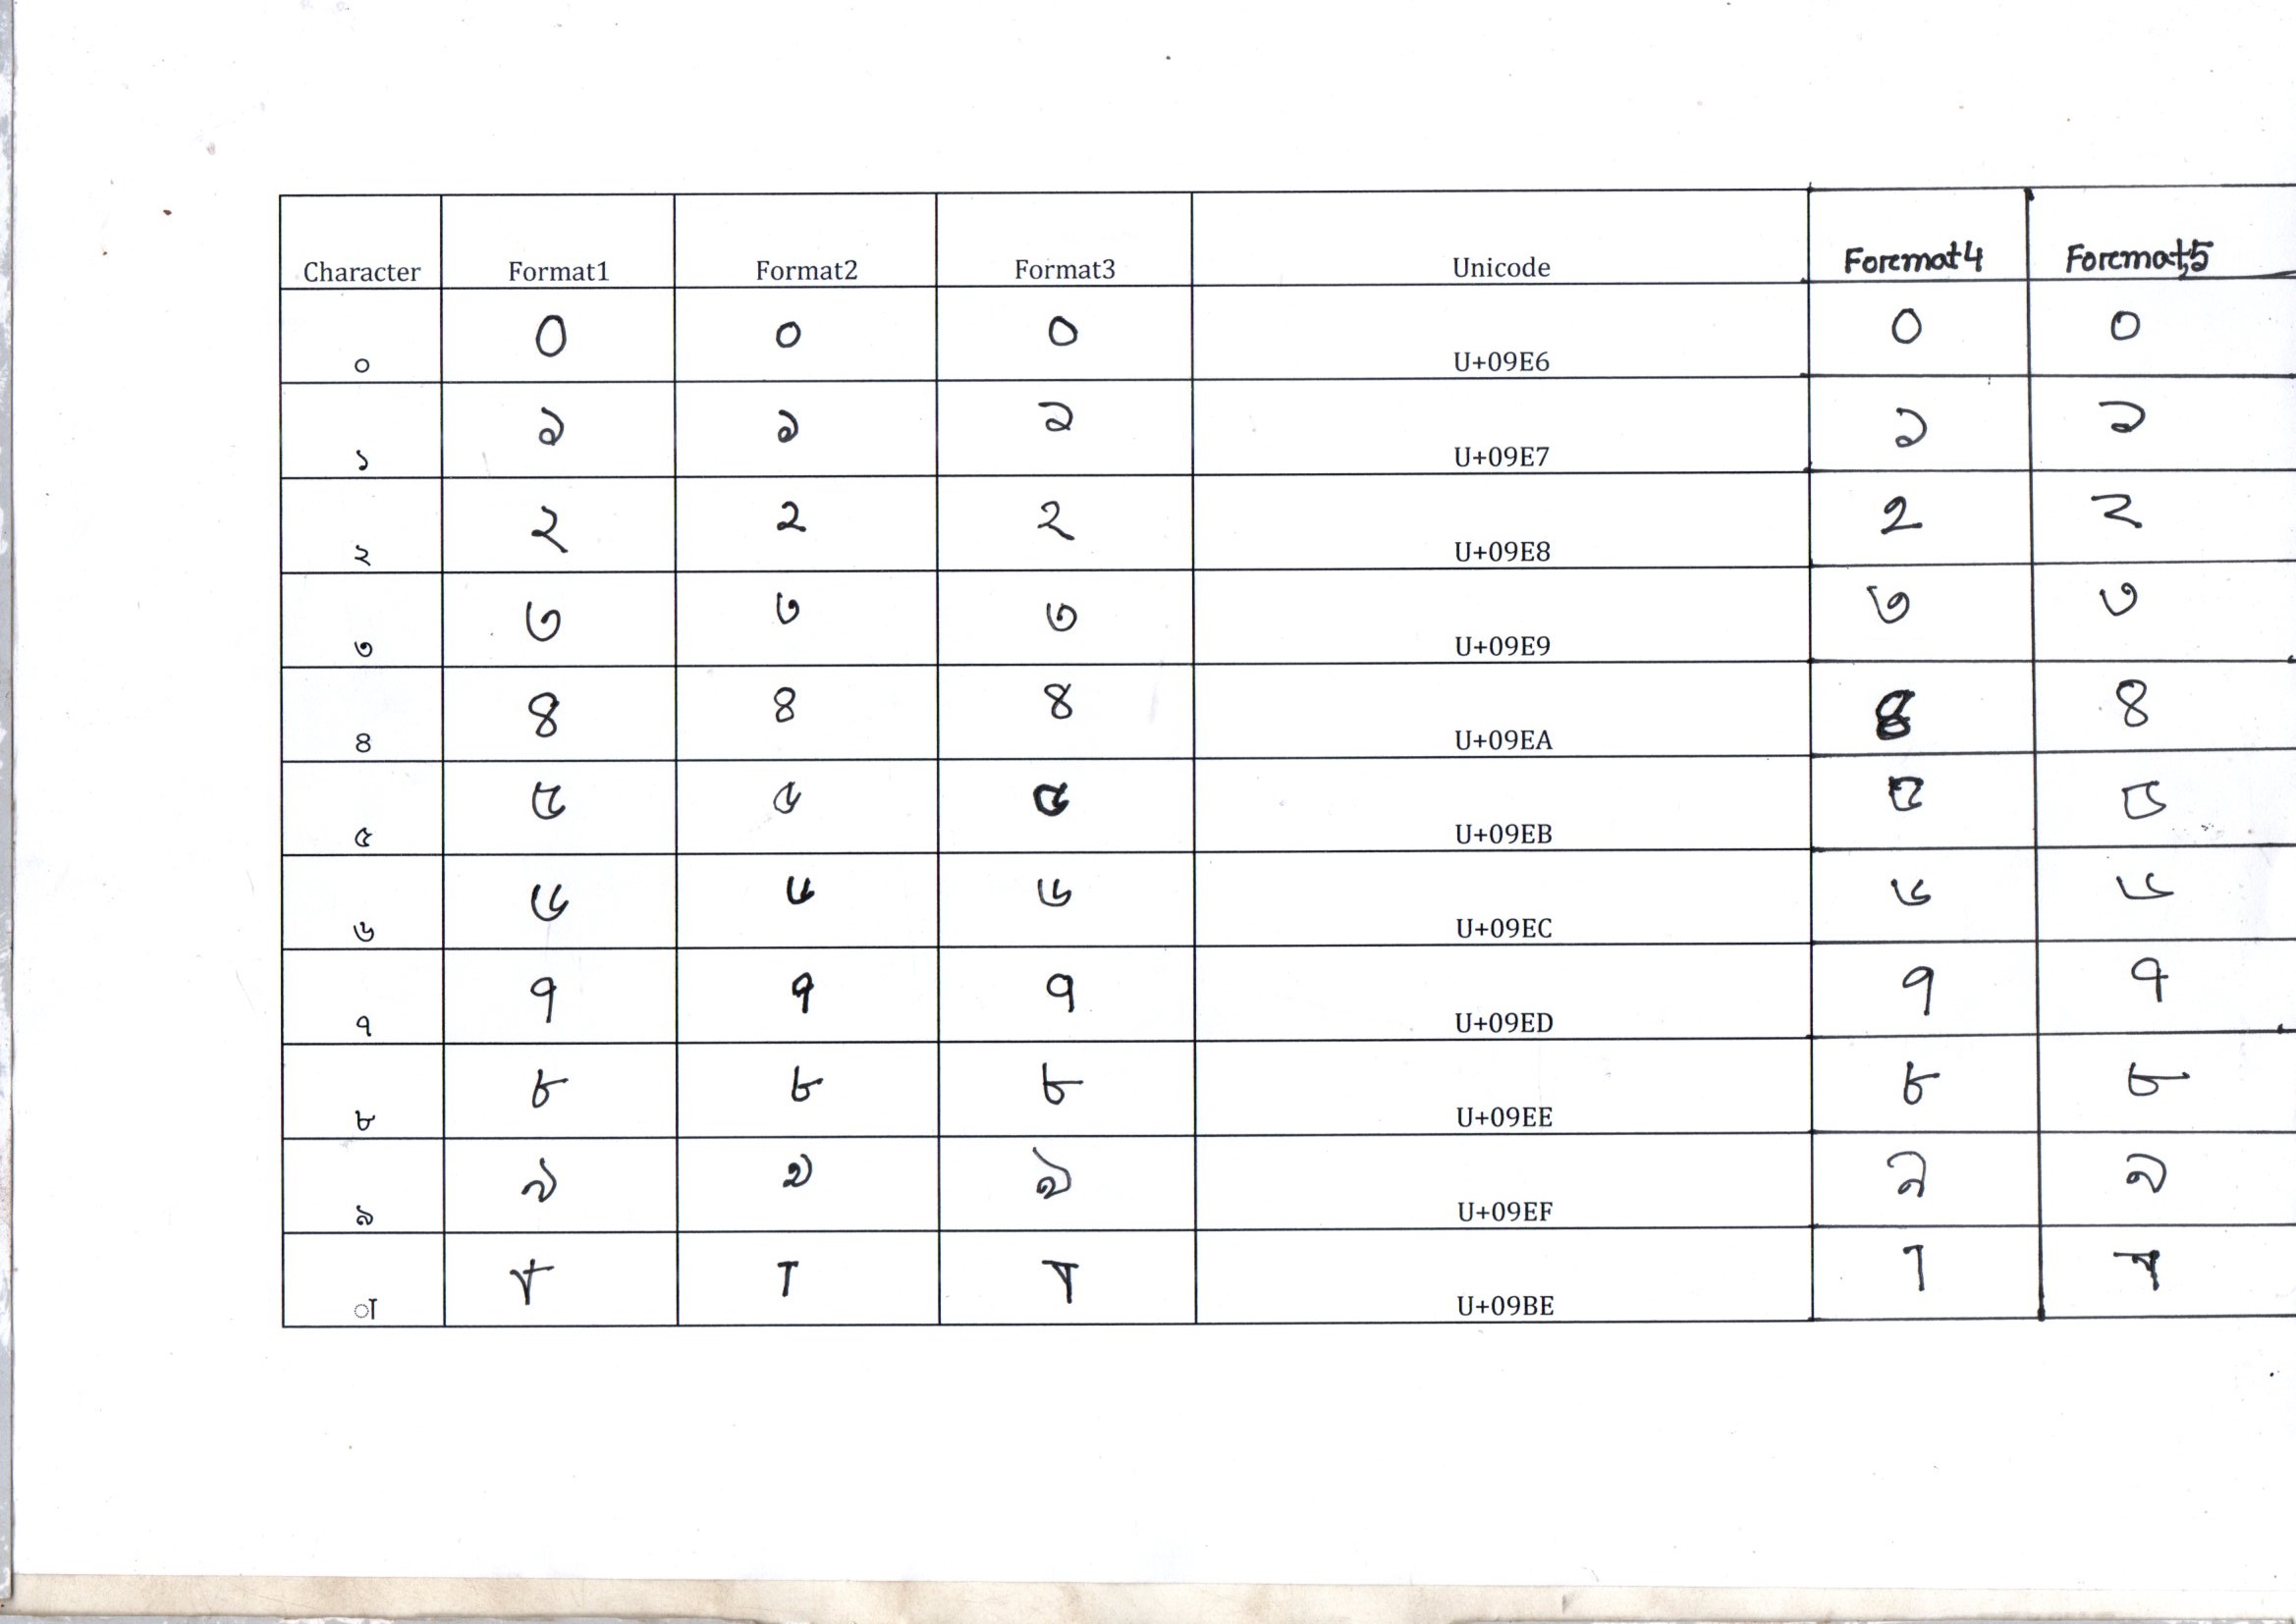 Character Format1 Format2 Format3 Unicode Foremat4 Foremat5
০ ০ ০ ০ U+09E6 ০ ০
১ ১ ১ ১ U+09E7 ১ ১
২ ২ ২ ২ U+09E8 ২ ২
৩ ৩ ৩ ৩ U+09E9 ৩ ৩
৪ ৪ ৪ ৪ U+09EA ৪ ৪
৫ ৫ ৫ ৫ U+09EB ৫ ৫
৬ ৬ ৬ ৬ U+09EC ৬ ৬
৭ ৭ ৭ ৭ U+09ED ৭ ৭
৮ ৮ ৮ ৮ U+09EE ৮ ৮
৯ ৯ ৯ ৯ U+09EF ৯ ৯
া া া া U+09BE া া